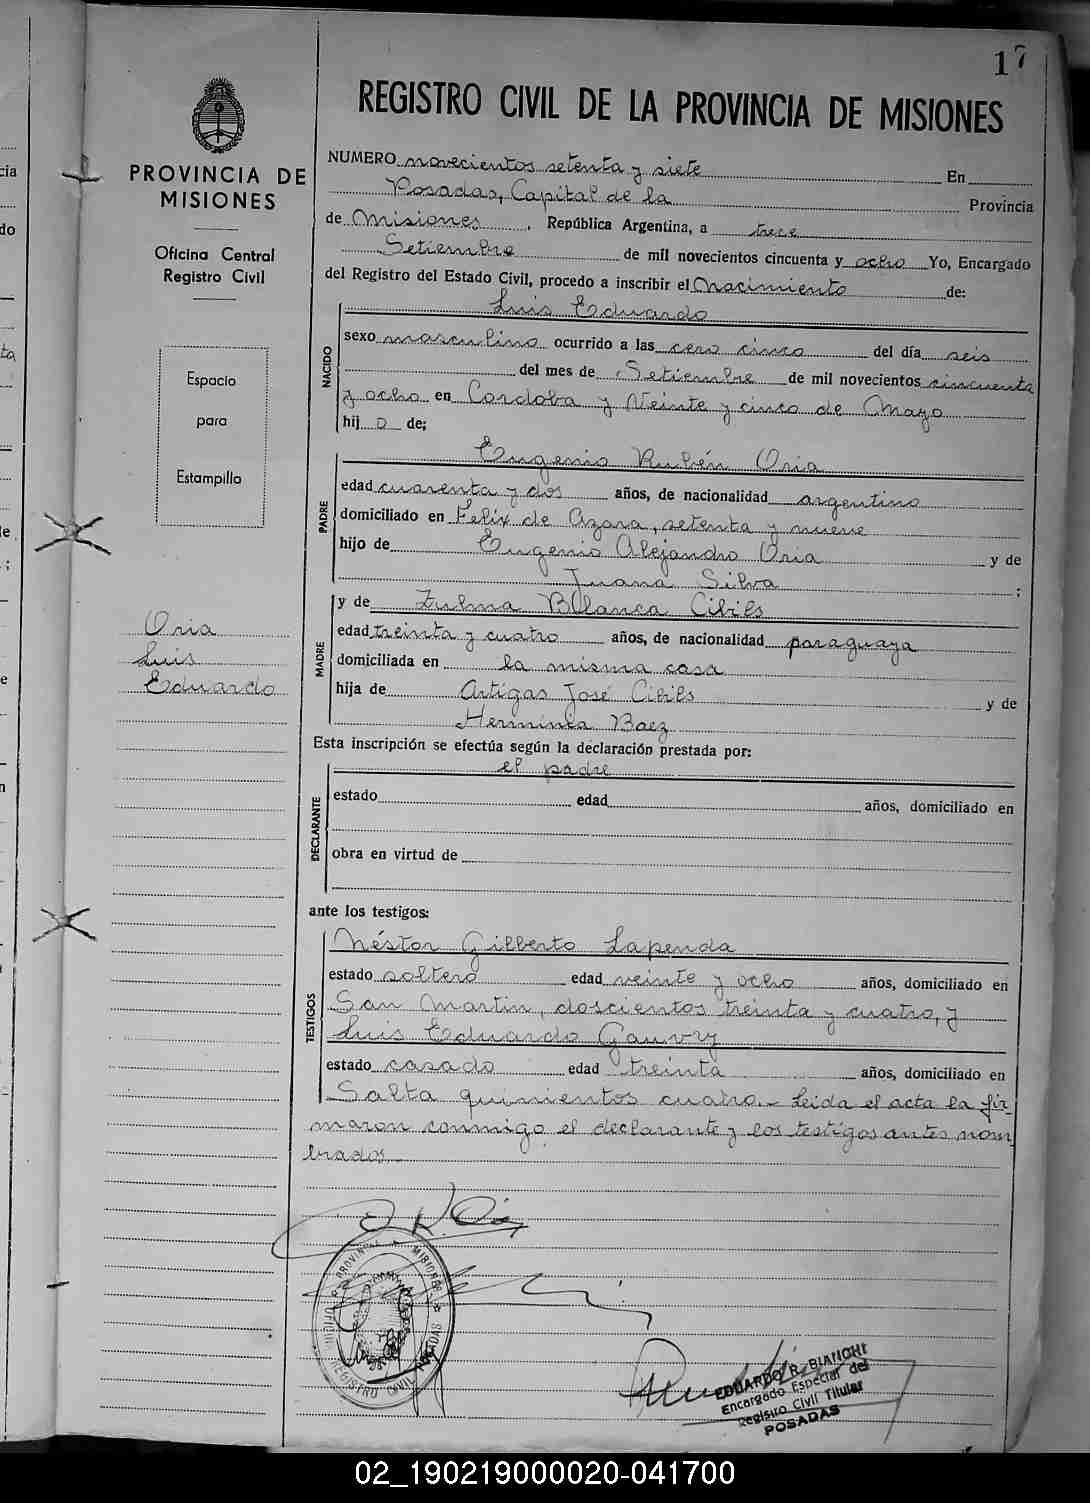 17
REGISTRO CIVIL DE LA PROVINCIA DE MISIONES
PROVINCIA DE
MISIONES
Oficina Central
Registro Civil
Espacio
para
Estampillo
Oria
Luis
Eduardo
NUMERO novecientos setenta y siete En
Posadas, Capital de la Provincia
de Misiones, República Argentina, a trece
Setiembre de mil novecientos cincuenta y ocho Yo, Encargado
del Registro del Estado Civil, procedo a inscribir el Nacimiento de:
NACIDO
Luis Eduardo
sexo masculino ocurrido a las cero cinco del día seis
del mes de Setiembre de mil novecientos cincuenta
y ocho en Cordoba y Veinte y cinco de Mayo
hij o de;
PADRE
Eugenio Rubén Oria
edad cuarenta y dos años, de nacionalidad argentino
domiciliado en Felix de Azara, setenta y nueve
hijo de Eugenio Alejandro Oria y de
Juana Silva ;
MADRE
y de Zulma Blanca Cibils
edad treinta y cuatro años, de nacionalidad paraguaya
domiciliada en la misma casa
hija de Artigas José Cibils y de
Herminia Baez
Esta inscripción se efectúa según la declaración prestada por:
DECLARANTE
el padre
estado edad años, domiciliado en
obra en virtud de
ante los testigos:
TESTIGOS
Néstor Gilberto Lapenda
estado soltero edad veinte y ocho años, domiciliado en
San Martin, doscientos treinta y cuatro, y
Luis Eduardo Gauvry
estado casado edad treinta años, domiciliado en
Salta quinientos cuatro.- Leida el acta la fir-
maron conmigo el declarante y los testigos antes nom-
brados.
PROVINCIA MISIONES
REGISTRO CIVIL POSADAS
EDUARDO R. BIANCHI
Encargado Especial del
Registro Civil Titular
POSADAS
02_190219000020-041700